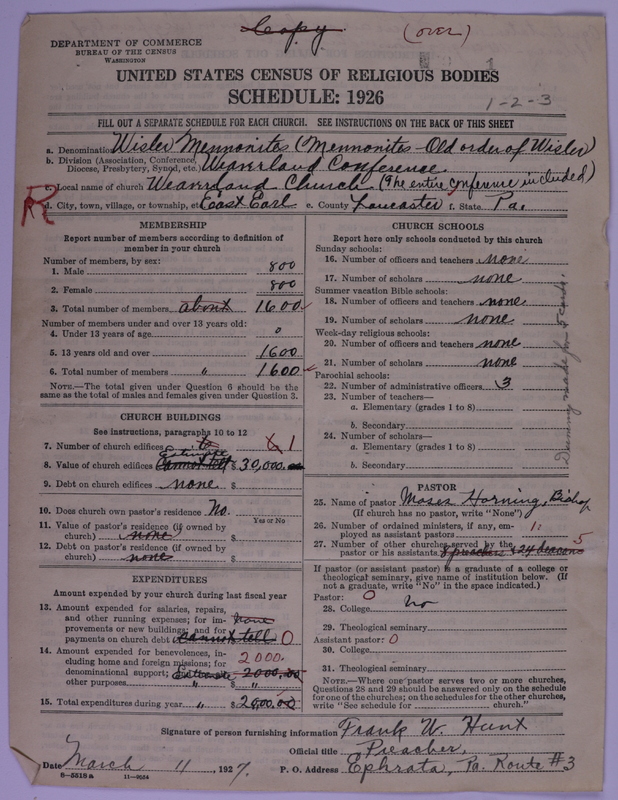 Copy
(over)
DEPARTMENT OF COMMERCE
BUREAU OF THE CENSUS
WASHINGTON
1
UNITED STATES CENSUS OF RELIGIOUS BODIES
SCHEDULE: 1926
1-2-3
FILL OUT A SEPARATE SCHEDULE FOR EACH CHURCH. SEE INSTRUCTIONS ON THE BACK OF THIS SHEET
a. Denomination Wisler Mennonites (Mennonites - Old order of Wisler)
b. Division (Association, Conference, Diocese, Presbytery, Synod, etc.) Weaverland Conference.
c. Local name of church Weaverland Church (The entire conference included)
d. City, town, village, or township, etc. East Earl e. County Lancaster f. State Pa.
R
MEMBERSHIP
Report number of members according to definition of
member in your church
Number of members, by sex:
1. Male 800
2. Female 800
3. Total number of members about 1600
Number of members under and over 13 years old:
4. Under 13 years of age 0
5. 13 years old and over 1600
6. Total number of members " 1600
NOTE.—The total given under Question 6 should be the
same as the total of males and females given under Question 3.
CHURCH BUILDINGS
See instructions, paragraphs 10 to 12
7. Number of church edifices 6 1
Estimate
8. Value of church edifices cannot tell $ 30,000.00
9. Debt on church edifices none $
10. Does church own pastor's residence No.
Yes or No
11. Value of pastor's residence (if owned by
church) none $
12. Debt on pastor's residence (if owned by
church) none $
EXPENDITURES
Amount expended by your church during last fiscal year
13. Amount expended for salaries, repairs,
and other running expenses; for im-
provements or new buildings; and for
payments on church debt cannot tell 0
none
14. Amount expended for benevolences, in-
cluding home and foreign missions; for 2000.
denominational support; Estimate 2000.00
other purposes " $ "
15. Total expenditures during year " $ 2000.00
CHURCH SCHOOLS
Report here only schools conducted by this church
Sunday schools:
16. Number of officers and teachers none
17. Number of scholars none
Summer vacation Bible schools:
18. Number of officers and teachers none
19. Number of scholars none
Week-day religious schools:
20. Number of officers and teachers none
21. Number of scholars none
Parochial schools:
22. Number of administrative officers 3
23. Number of teachers—
a. Elementary (grades 1 to 8)
b. Secondary
24. Number of scholars—
a. Elementary (grades 1 to 8)
b. Secondary
Dummy made for 5 cards.
PASTOR
25. Name of pastor Moses Horning, Bishop
(If church has no pastor, write "None")
26. Number of ordained ministers, if any, em-
ployed as assistant pastors
27. Number of other churches served by the 5
pastor or his assistants 8 preachers & 24 deacons
If pastor (or assistant pastor) is a graduate of a college or
theological seminary, give name of institution below. (If
not a graduate, write "No" in the space indicated.)
Pastor: 0
28. College No
29. Theological seminary
Assistant pastor: 0
30. College
31. Theological seminary
NOTE.—Where one pastor serves two or more churches,
Questions 28 and 29 should be answered only on the schedule
for one of the churches; on the schedules for the other churches,
write "See schedule for church."
Signature of person furnishing information Frank W. Hunt
Official title Preacher,
Date March 11, 1927. P. O. Address Ephrata, Pa. Route #3
8-5518a 11-9984